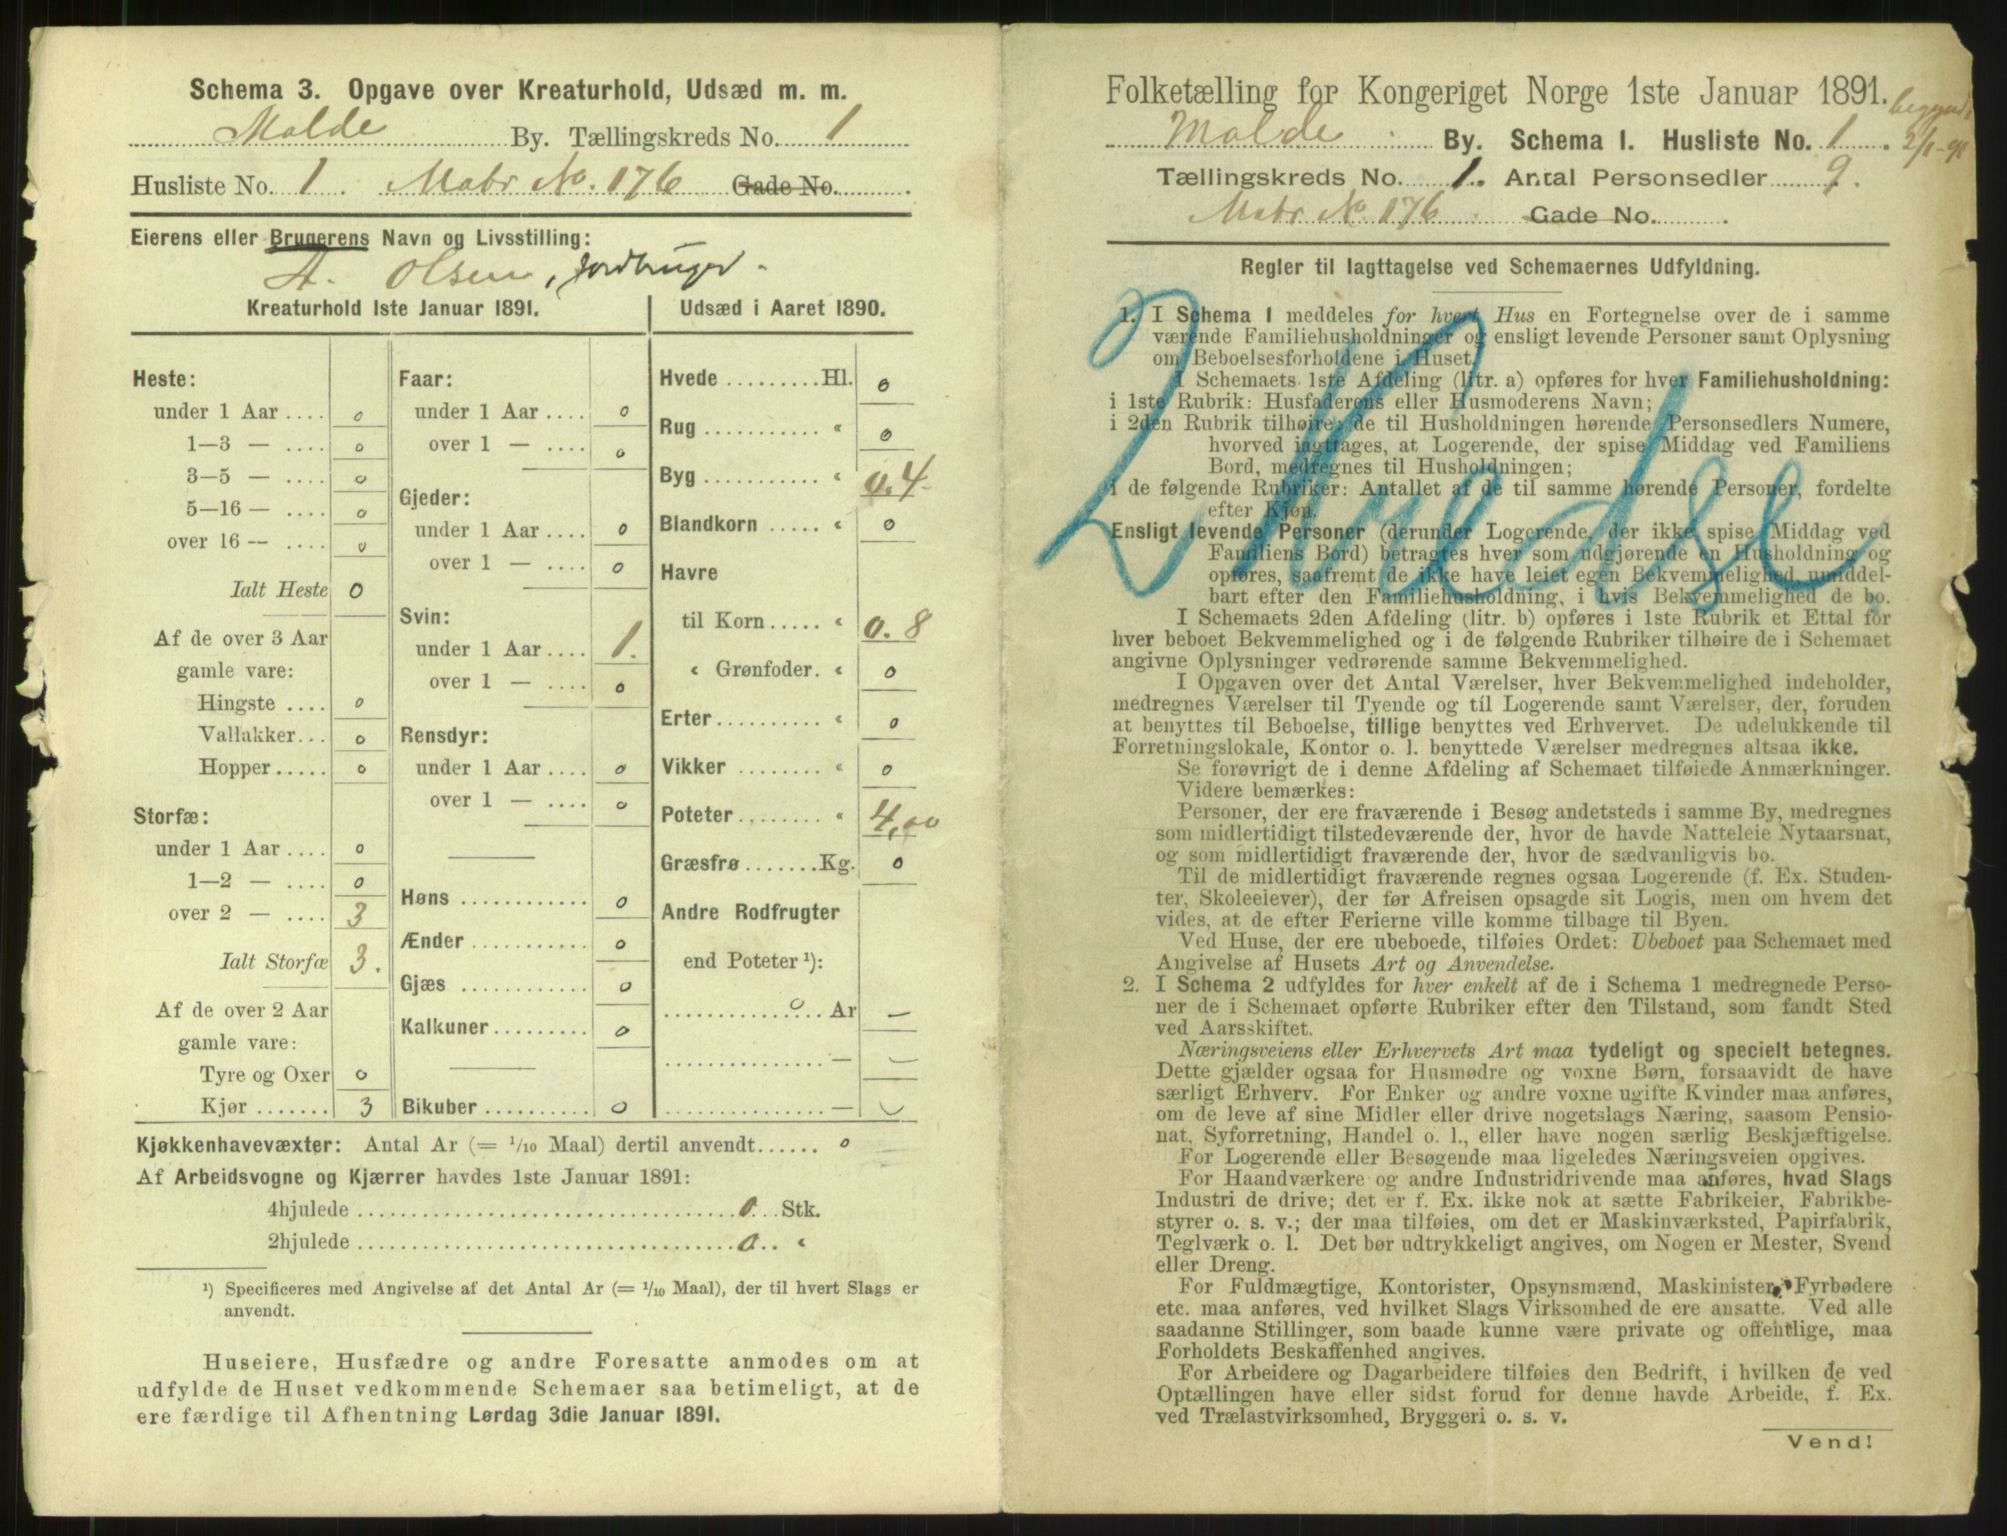 Schema 3. Opgave over Kreaturhold, Udsæd m. m.
Molde By. Tællingskreds No. 1
Husliste No. 1. Matr No. 176 Gade No.
Eierens eller Brugerens Navn og Livsstilling:
A. Olsen, jordbruger.
Kreaturhold 1ste Januar 1891.
Heste:
under 1 Aar .... 0
1—3 — .... 0
3—5 — .... 0
5—16 — .... 0
over 16 — .... 0
Ialt Heste 0
Af de over 3 Aar
gamle vare:
Hingste .... 0
Vallakker... 0
Hopper..... 0
Storfæ:
under 1 Aar .... 0
1—2 — .... 0
over 2 — .... 3
Ialt Storfæ 3.
Af de over 2 Aar
gamle vare:
Tyre og Oxer 0
Kjør ....... 3
Faar:
under 1 Aar .... 0
over 1 — .... 0
Gjeder:
under 1 Aar .... 0
over 1 — .... 0
Svin:
under 1 Aar .... 1.
over 1 — .... 0
Rensdyr:
under 1 Aar .... 0
over 1 — .... 0
Høns ............ 0
Ænder ........... 0
Gjæs ............ 0
Kalkuner......... 0
Bikuber .......... 0
Udsæd i Aaret 1890.
Hvede ......... Hl. 0
Rug ........... " 0
Byg ........... " 0.4
Blandkorn ..... " 0
Havre
til Korn ..... " 0.8
" Grønfoder. " 0
Erter.......... " 0
Vikker ........ " 0
Poteter ........ " 4,00
Græsfrø ....... Kg. 0
Andre Rodfrugter
end Poteter ¹):
0 Ar —
—
—
Kjøkkenhavevæxter: Antal Ar (= 1/10 Maal) dertil anvendt...... 0
Af Arbeidsvogne og Kjærrer havdes 1ste Januar 1891:
4hjulede .................................. 0 ... Stk.
2hjulede .................................. 0 .. "
¹) Specificeres med Angivelse af det Antal Ar (= 1/10 Maal), der til hvert Slags er
anvendt.
Huseiere, Husfædre og andre Foresatte anmodes om at
udfylde de Huset vedkommende Schemaer saa betimeligt, at de
ere færdige til Afhentning Lørdag 3die Januar 1891.
Folketælling for Kongeriget Norge 1ste Januar 1891.
Molde By. Schema 1. Husliste No. 1. 2/1-91
Tællingskreds No. 1. Antal Personsedler 9.
Matr No. 176 Gade No.
Regler til Iagttagelse ved Schemaernes Udfyldning.
1. I Schema 1 meddeles for hvert Hus en Fortegnelse over de i samme
værende Familiehusholdninger og ensligt levende Personer samt Oplysning
om Beboelsesforholdene i Huset.
I Schemaets 1ste Afdeling (litr. a) opføres for hver Familiehusholdning:
i 1ste Rubrik: Husfaderens eller Husmoderens Navn;
i 2den Rubrik tilhøire: de til Husholdningen hørende Personsedlers Numere,
hvorved iagttages, at Logerende, der spise Middag ved Familiens
Bord, medregnes til Husholdningen;
i de følgende Rubriker: Antallet af de til samme hørende Personer, fordelte
efter Kjøn.
Ensligt levende Personer (derunder Logerende, der ikke spise Middag ved
Familiens Bord) betragtes hver som udgjørende en Husholdning og
opføres, saafremt de ikke have leiet egen Bekvemmelighed, umiddel-
bart efter den Familiehusholdning, i hvis Bekvemmelighed de bo.
I Schemaets 2den Afdeling (litr. b) opføres i 1ste Rubrik et Ettal for
hver beboet Bekvemmelighed og i de følgende Rubriker tilhøire de i Schemaet
angivne Oplysninger vedrørende samme Bekvemmelighed.
I Opgaven over det Antal Værelser, hver Bekvemmelighed indeholder,
medregnes Værelser til Tyende og til Logerende samt Værelser, der, foruden
at benyttes til Beboelse, tillige benyttes ved Erhvervet. De udelukkende til
Forretningslokale, Kontor o. l. benyttede Værelser medregnes altsaa ikke.
Se forøvrigt de i denne Afdeling af Schemaet tilføiede Anmærkninger.
Videre bemærkes:
Personer, der ere fraværende i Besøg andetsteds i samme By, medregnes
som midlertidigt tilstedeværende der, hvor de havde Natteleie Nytaarsnat,
og som midlertidigt fraværende der, hvor de sædvanligvis bo.
Til de midlertidigt fraværende regnes ogsaa Logerende (f. Ex. Studen-
ter, Skoleeiever), der før Afreisen opsagde sit Logis, men om hvem det
vides, at de efter Ferierne ville komme tilbage til Byen.
Ved Huse, der ere ubeboede, tilføies Ordet: Ubeboet paa Schemaet med
Angivelse af Husets Art og Anvendelse.
2. I Schema 2 udfyldes for hver enkelt af de i Schema 1 medregnede Perso-
ner de i Schemaet opførte Rubriker efter den Tilstand, som fandt Sted
ved Aarsskiftet.
Næringsveiens eller Erhvervets Art maa tydeligt og specielt betegnes.
Dette gjælder ogsaa for Husmødre og voxne Børn, forsaavidt de have
særligt Erhverv. For Enker og andre voxne ugifte Kvinder maa anføres,
om de leve af sine Midler eller drive nogetslags Næring, saasom Pensio-
nat, Syforretning, Handel o. l., eller have nogen særlig Beskjæftigelse.
For Logerende eller Besøgende maa ligeledes Næringsveien opgives.
For Haandværkere og andre Industridrivende maa anføres, hvad Slags
Industri de drive; det er f. Ex. ikke nok at sætte Fabrikeier, Fabrikbe-
styrer o. s. v.; der maa tilføies, om det er Maskinværksted, Papirfabrik,
Teglværk o. l. Det bør udtrykkeligt angives, om Nogen er Mester, Svend
eller Dreng.
For Fuldmægtige, Kontorister, Opsynsmænd, Maskinister, Fyrbødere
etc. maa anføres, ved hvilket Slags Virksomhed de ere ansatte. Ved alle
saadanne Stillinger, som baade kunne være private og offentlige, maa
Forholdets Beskaffenhed angives.
For Arbeidere og Dagarbeidere tilføies den Bedrift, i hvilken de ved
Optællingen have eller sidst forud for denne havde Arbeide, f. Ex.
ved Trælastvirksomhed, Bryggeri o. s. v.
Vend!